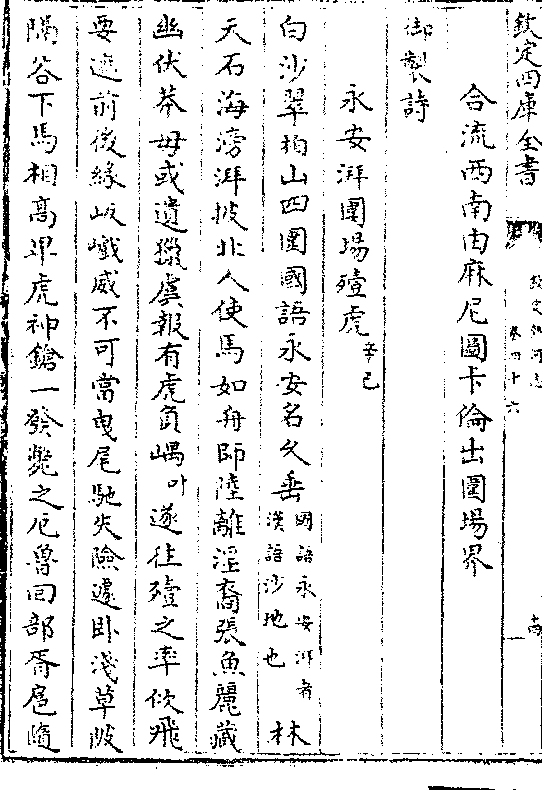 欽定四庫全書
欽定熱河志
卷四十六
合流西南由麻尼圖卡倫出圍場界
御製詩
永安湃圍場殪虎辛巳
白沙翠柏山四圍國語永安名久垂國語永安湃者漢語沙地也林
天石海滂湃披北人使馬如舟師陸離淫裔張魚麗藏
幽伏莽毋或遺獵虞報有虎負嵎叶遂往殪之率佽飛
要遮前後緣岅巇威不可當曳尾馳失險遽卧淺草陂
隔谷下馬相高卑虎神鎗一發斃之厄魯回部胥扈隨